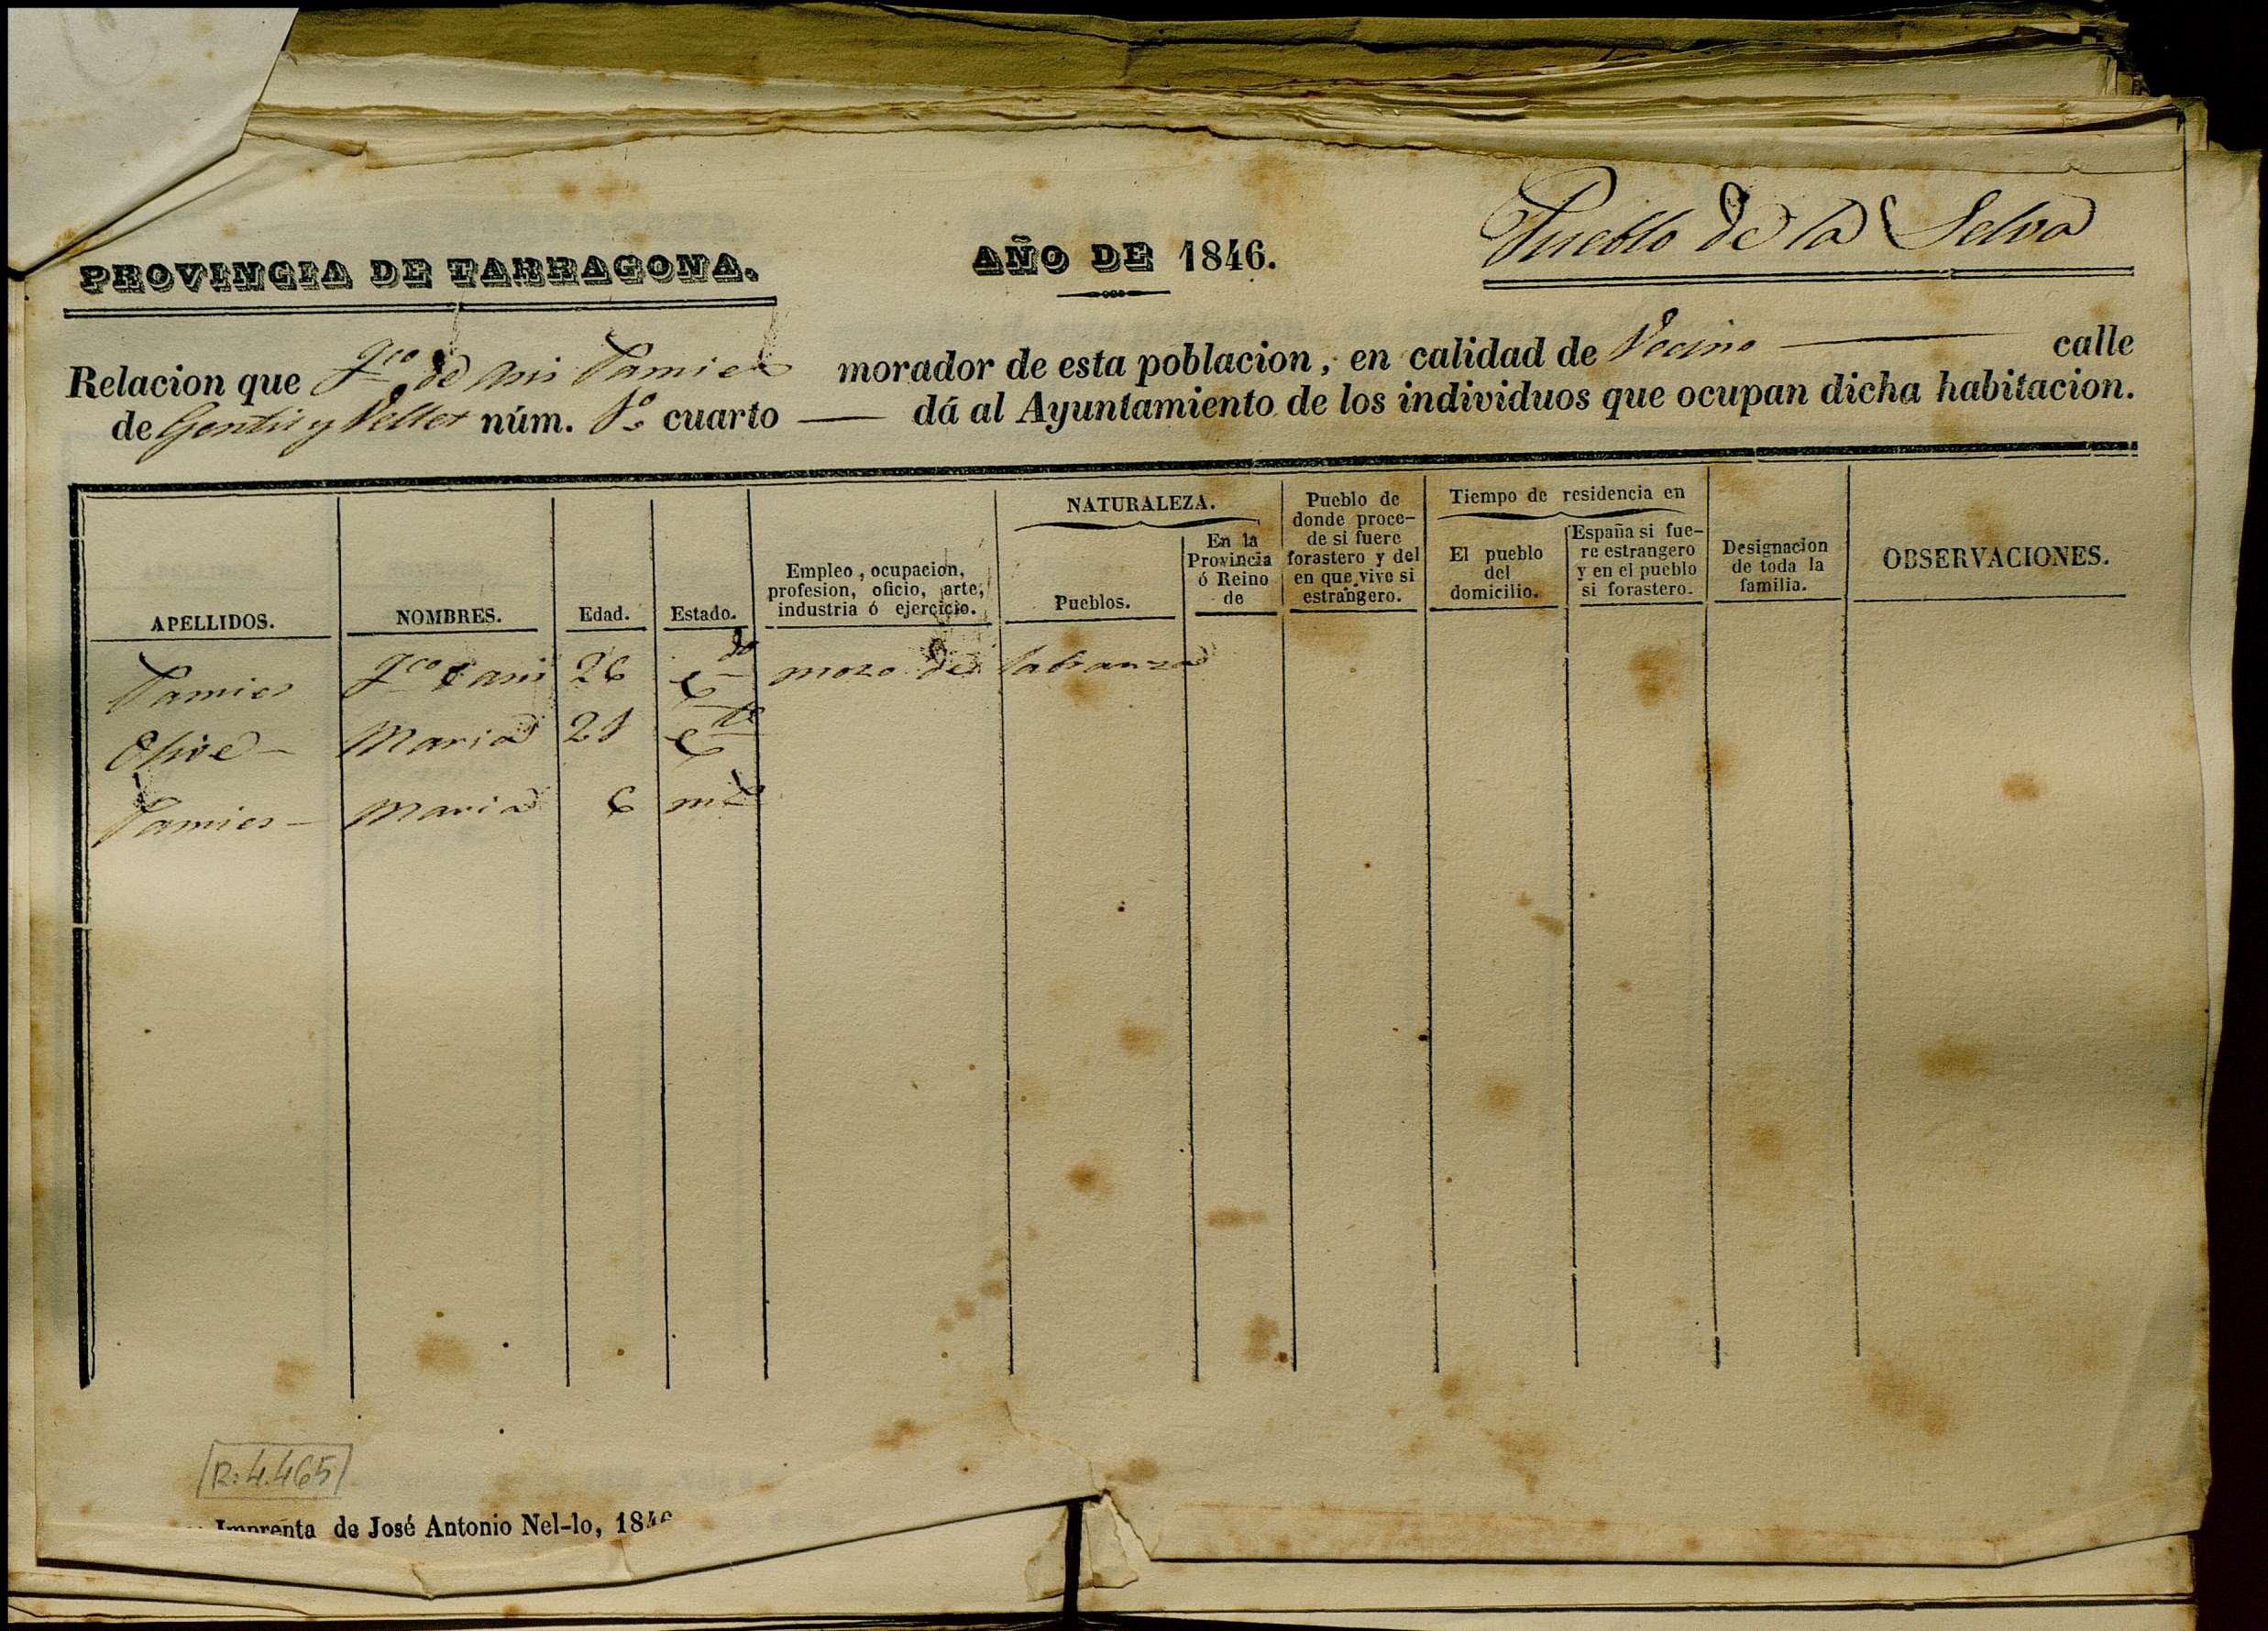 PROVINCIA DE TARRAGONA.
AÑO DE 1846.
Pueblo de la Selva
Relacion que Fco de Asis Pamies morador de esta poblacion, en calidad de Vecino calle
de Gentis y Vellet núm. 1º cuarto — dá al Ayuntamiento de los individuos que ocupan dicha habitacion.
APELLIDOS.
NOMBRES.
Edad.
Estado.
Empleo, ocupacion,
profesion, oficio, arte,
industria ó ejercicio.
NATURALEZA.
Pueblos.
En la
Provincia
ó Reino
de
Pueblo de
donde proce-
de si fuere
forastero y del
en que vive si
estrangero.
Tiempo de residencia en
El pueblo
del
domicilio.
España si fue-
re estrangero
y en el pueblo
si forastero.
Designacion
de toda la
familia.
OBSERVACIONES.
Pamies Fco 26 cdo mozo de labranza
Olive Maria 21 cda
Pamies Maria 6 m
R: 4.465
Imprenta de José Antonio Nel-lo, 1846